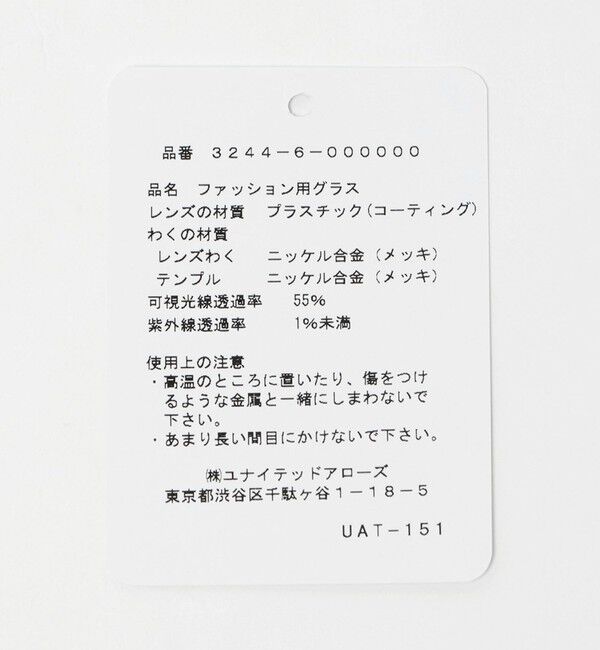 品番 3244-6-000000
品名 ファッション用グラス
レンズの材質 プラスチック(コーティング)
わくの材質
レンズわく ニッケル合金(メッキ)
テンプル ニッケル合金(メッキ)
可視光線透過率 55%
紫外線透過率 1%未満
使用上の注意
・高温のところに置いたり、傷をつけ
るような金属と一緒にしまわないで
下さい。
・あまり長い間目にかけないで下さい。
㈱ユナイテッドアローズ
東京都渋谷区千駄ヶ谷1-18-5
UAT-151